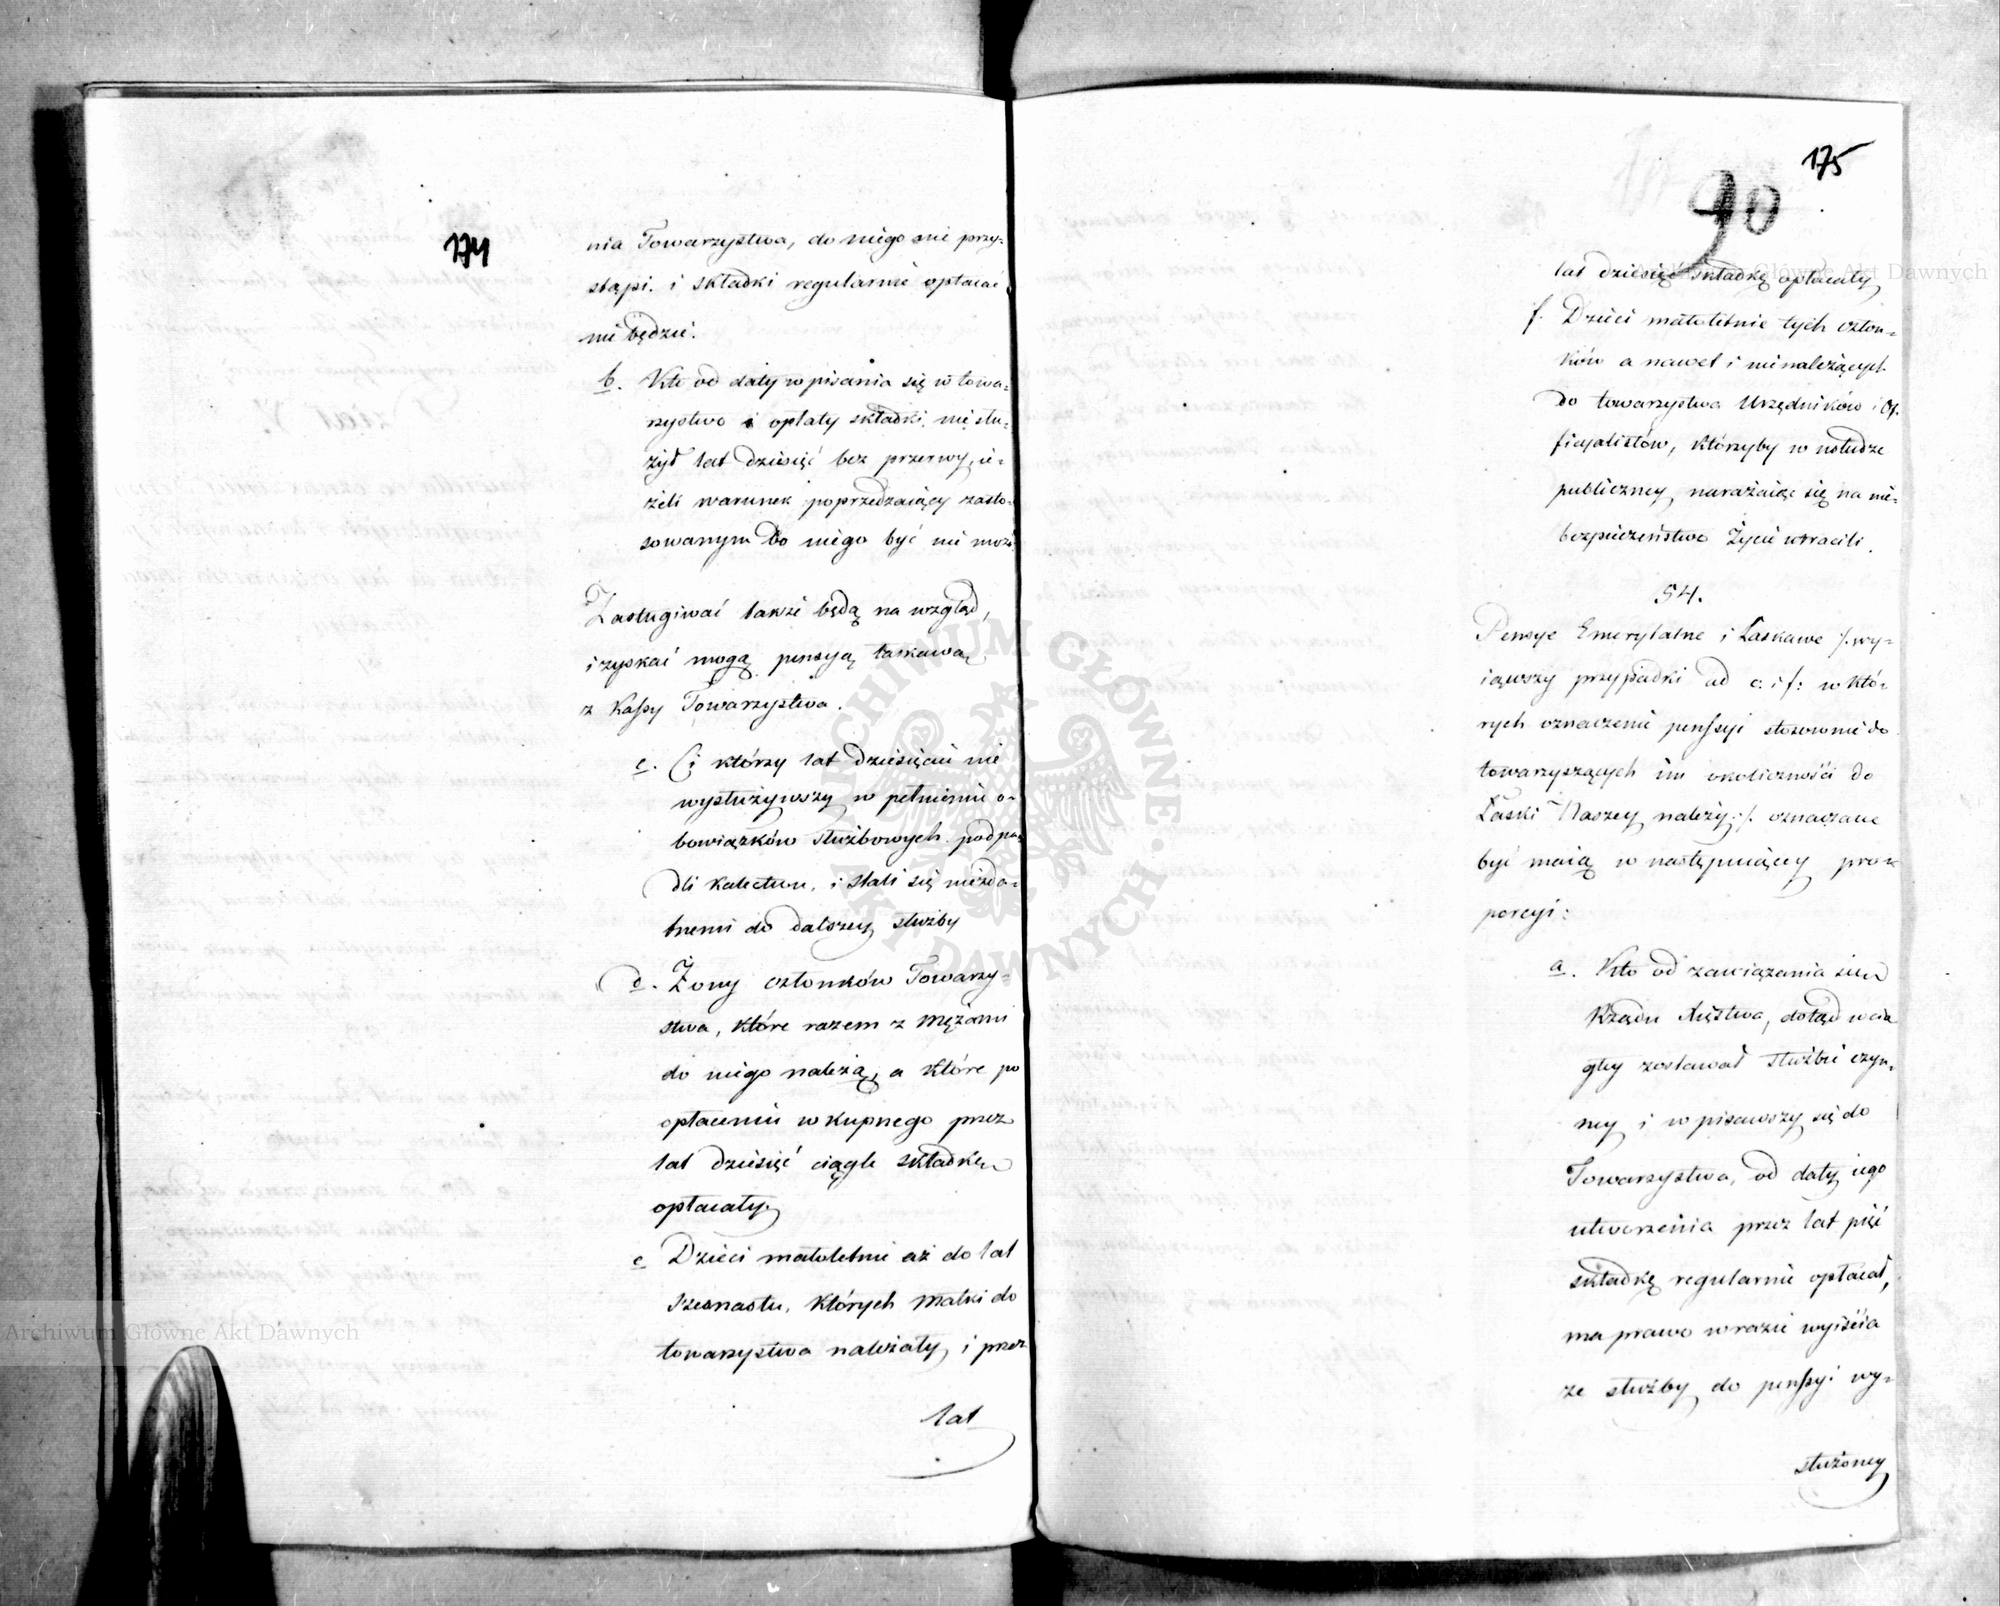 174
nia Towarzystwa, do niego nie przy-
stąpi. i składki regularnie opłacać
nie będzie.
b. Kto od daty wpisania się w towa-
rzystwo i opłaty składki, nie słu-
żył lat dziesięć bez przerwy, ie-
żeli warunek poprzedzaiący zasto-
sowanym do niego być nie może
Zasługiwać także będą na wzgląd,
i zyskać mogą pensyą łaskawą
z Kassy Towarzystwa.
c. Ci którzy lat dziesięciu nie
wysłużywszy w pełnieniu o-
bowiązków służbowych podpa-
dli kalectwu, i stali się niezda-
tnemi do dalszey służby
d. Żony członków Towarzy-
stwa, które razem z mężami
do niego należą, a które po
opłaceniu wkupnego przez
lat dziesięć ciągle składkę
opłacały.
e Dzieci małoletnie aż do lat
szesnastu, których matki do
towarzystwa należały, i przez
lat
175
90
lat dziesięć składkę opłacały
f. Dzieci małoletnie tych człon-
ków a nawet i nienależących
do towarzystwa Urzędników i Of-
ficyalistów, którzyby w usłudze
publiczney, narażaiąc się na nie-
bezpieczeństwo Życie utracili.
54.
Pensye Emerytalne i Łaskawe /. wy-
iąwszy przypadki ad c: i f: w któ-
rych oznaczenie penssyi stosownie do
towarzyszących im okoliczności do
Łaski Naszey należy :/. oznaczane
być maią w następuiącey pro-
porcyi:
a. Kto od zawiązania się
Rządu Xięstwa, dotąd w cią-
głey zostawał służbie czyn-
ney i wpisawszy się do
Towarzystwa, od daty iego
utworzenia przez lat pięć
składkę regularnie opłacał,
ma prawo w razie wyiścia
ze służby do penssyi wy-
służoney
Archiwum Główne Akt Dawnych
Archiwum Główne Akt Dawnych
ARCHIWUM GŁÓWNE AKT DAWNYCH